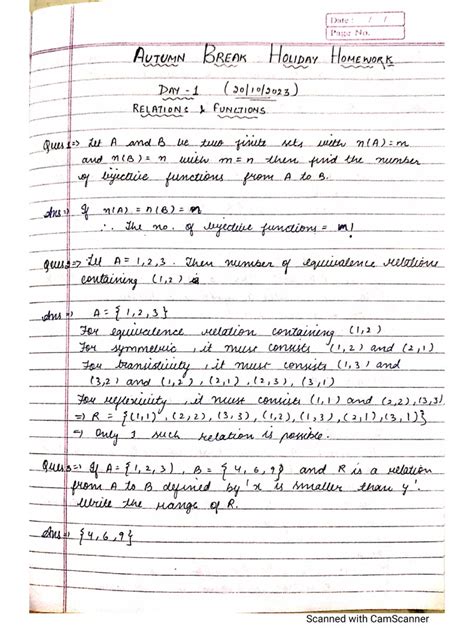 Date : / /
Page No.
AUTUMN BREAK HOLIDAY HOMEWORK
DAY - 1 (20/10/2023)
RELATIONS & FUNCTIONS
Ques 1=> Let A and B be two finite sets with n(A)=m
and n(B) = n with m = n then find the number
of bijective functions from A to B.
Ans => If n(A) = n(B) = m
∴ The no. of bijective functions = m!
Ques 2=> Let A = 1,2,3. Then number of equivalence relations
containing (1,2) is
Ans => A = {1,2,3}
For equivalence relation containing (1,2)
For symmetric, it must consists (1,2) and (2,1)
For transistivity, it must consists (1,3) and
(3,2) and (1,2), (2,1), (2,3), (3,1)
For reflexivity, it must consists (1,1) and (2,2), (3,3).
=> R = {(1,1), (2,2), (3,3), (1,2), (1,3), (2,1), (3,1)}
=> Only 1 such relation is possible.
Ques 3=> If A = {1,2,3}, B = {4,6,9} and R is a relation
from A to B defined by 'x is smaller than y'.
Write the range of R.
Ans => {4,6,9}
Scanned with CamScanner